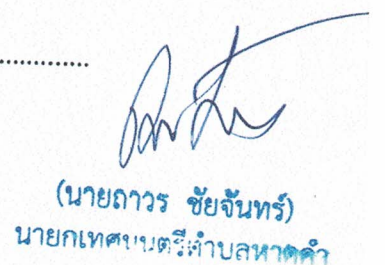 (นายถาวร ชัยจันทร์)
นายกเทศมนตรีตำบลหาดคำ